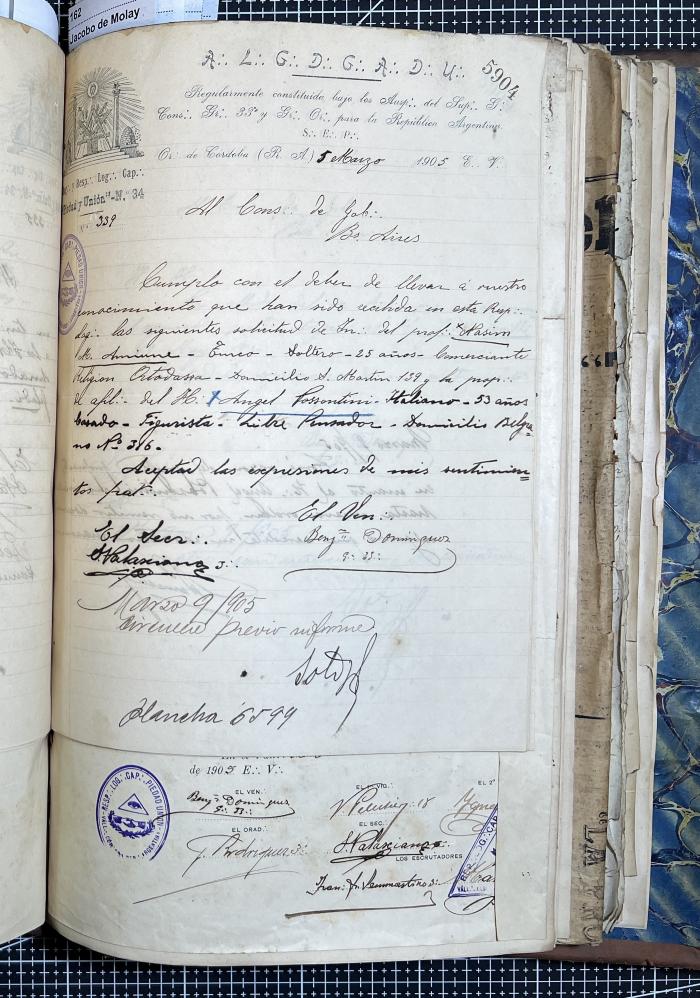 162
Jacobo de Molay
A∴ L∴ G∴ D∴ G∴ A∴ D∴ U∴
5904
Regularmente constituida bajo los Ausp∴ del Sup∴ G∴
Cons∴ Gr∴ 33° y Gr∴ Or∴ para la República Argentina
S∴ E∴ P∴
Or∴ de Córdoba (R. A.) 5 Marzo 1905 E∴ V∴
Resp∴ Log∴ Cap∴
Piedad y Unión"-N.° 34
N° 339
Al Cons∴ de Gob∴
Bs. Aires
Cumplo con el deber de llevar á vuestro
conocimiento que han sido recibida en esta Resp∴
Log∴ las siguientes solicitud de In∴ del prof∴ Nasim
M. Amiune - Turco - Soltero - 25 años - Comerciante
religion Ortodassa - Domicilio S. Martin 139 y la prop∴
de afil∴ del H∴ Angel Possentini - Italiano - 53 años
Casado - Figurista - Libre Pensador - Domicilio Belgra=
no N° 386 -
Aceptad las expresiones de mis sentimien=
tos frat∴
El Ven∴
Benj.n Dominguez
g∴ 33∴
El Secr∴
S Palasciano 3∴
Marzo 9/905
Circulese previo informe
Plancha 6599
de 1905 E∴ V∴
EL VEN∴
Benj.n Dominguez
g∴ 33∴
EL 2°
EL ORAD∴
Rodriguez 3∴
EL SEC∴
S Palasciano 3∴
LOS ESCRUTADORES
RESP∴ LOG∴ CAP∴ PIEDAD UNION